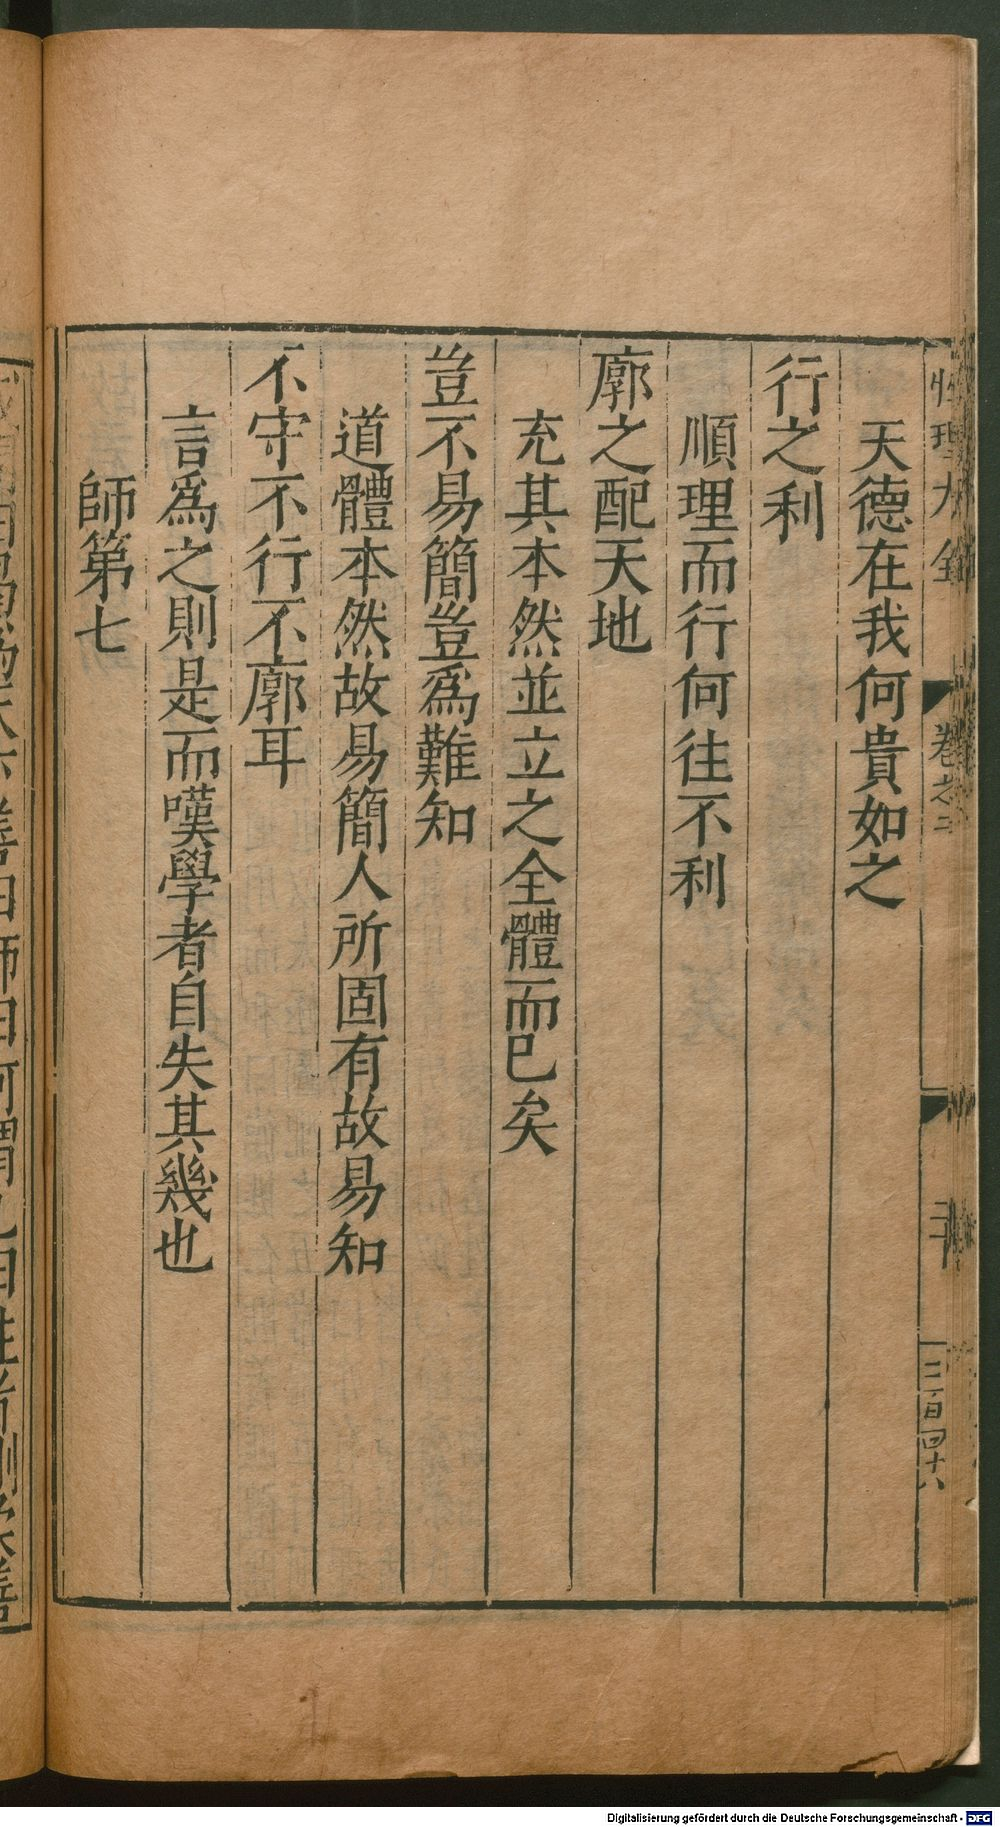 性理大全 卷之二 二十 三百四十八
天德在我何貴如之
行之利
順理而行何往不利
廓之配天地
充其本然並立之全體而已矣
豈不易簡豈爲難知
道體本然故易簡人所固有故易知
不守不行不廓耳
言爲之則是而嘆學者自失其幾也
師第七
Digitalisierung gefördert durch die Deutsche Forschungsgemeinschaft - DFG